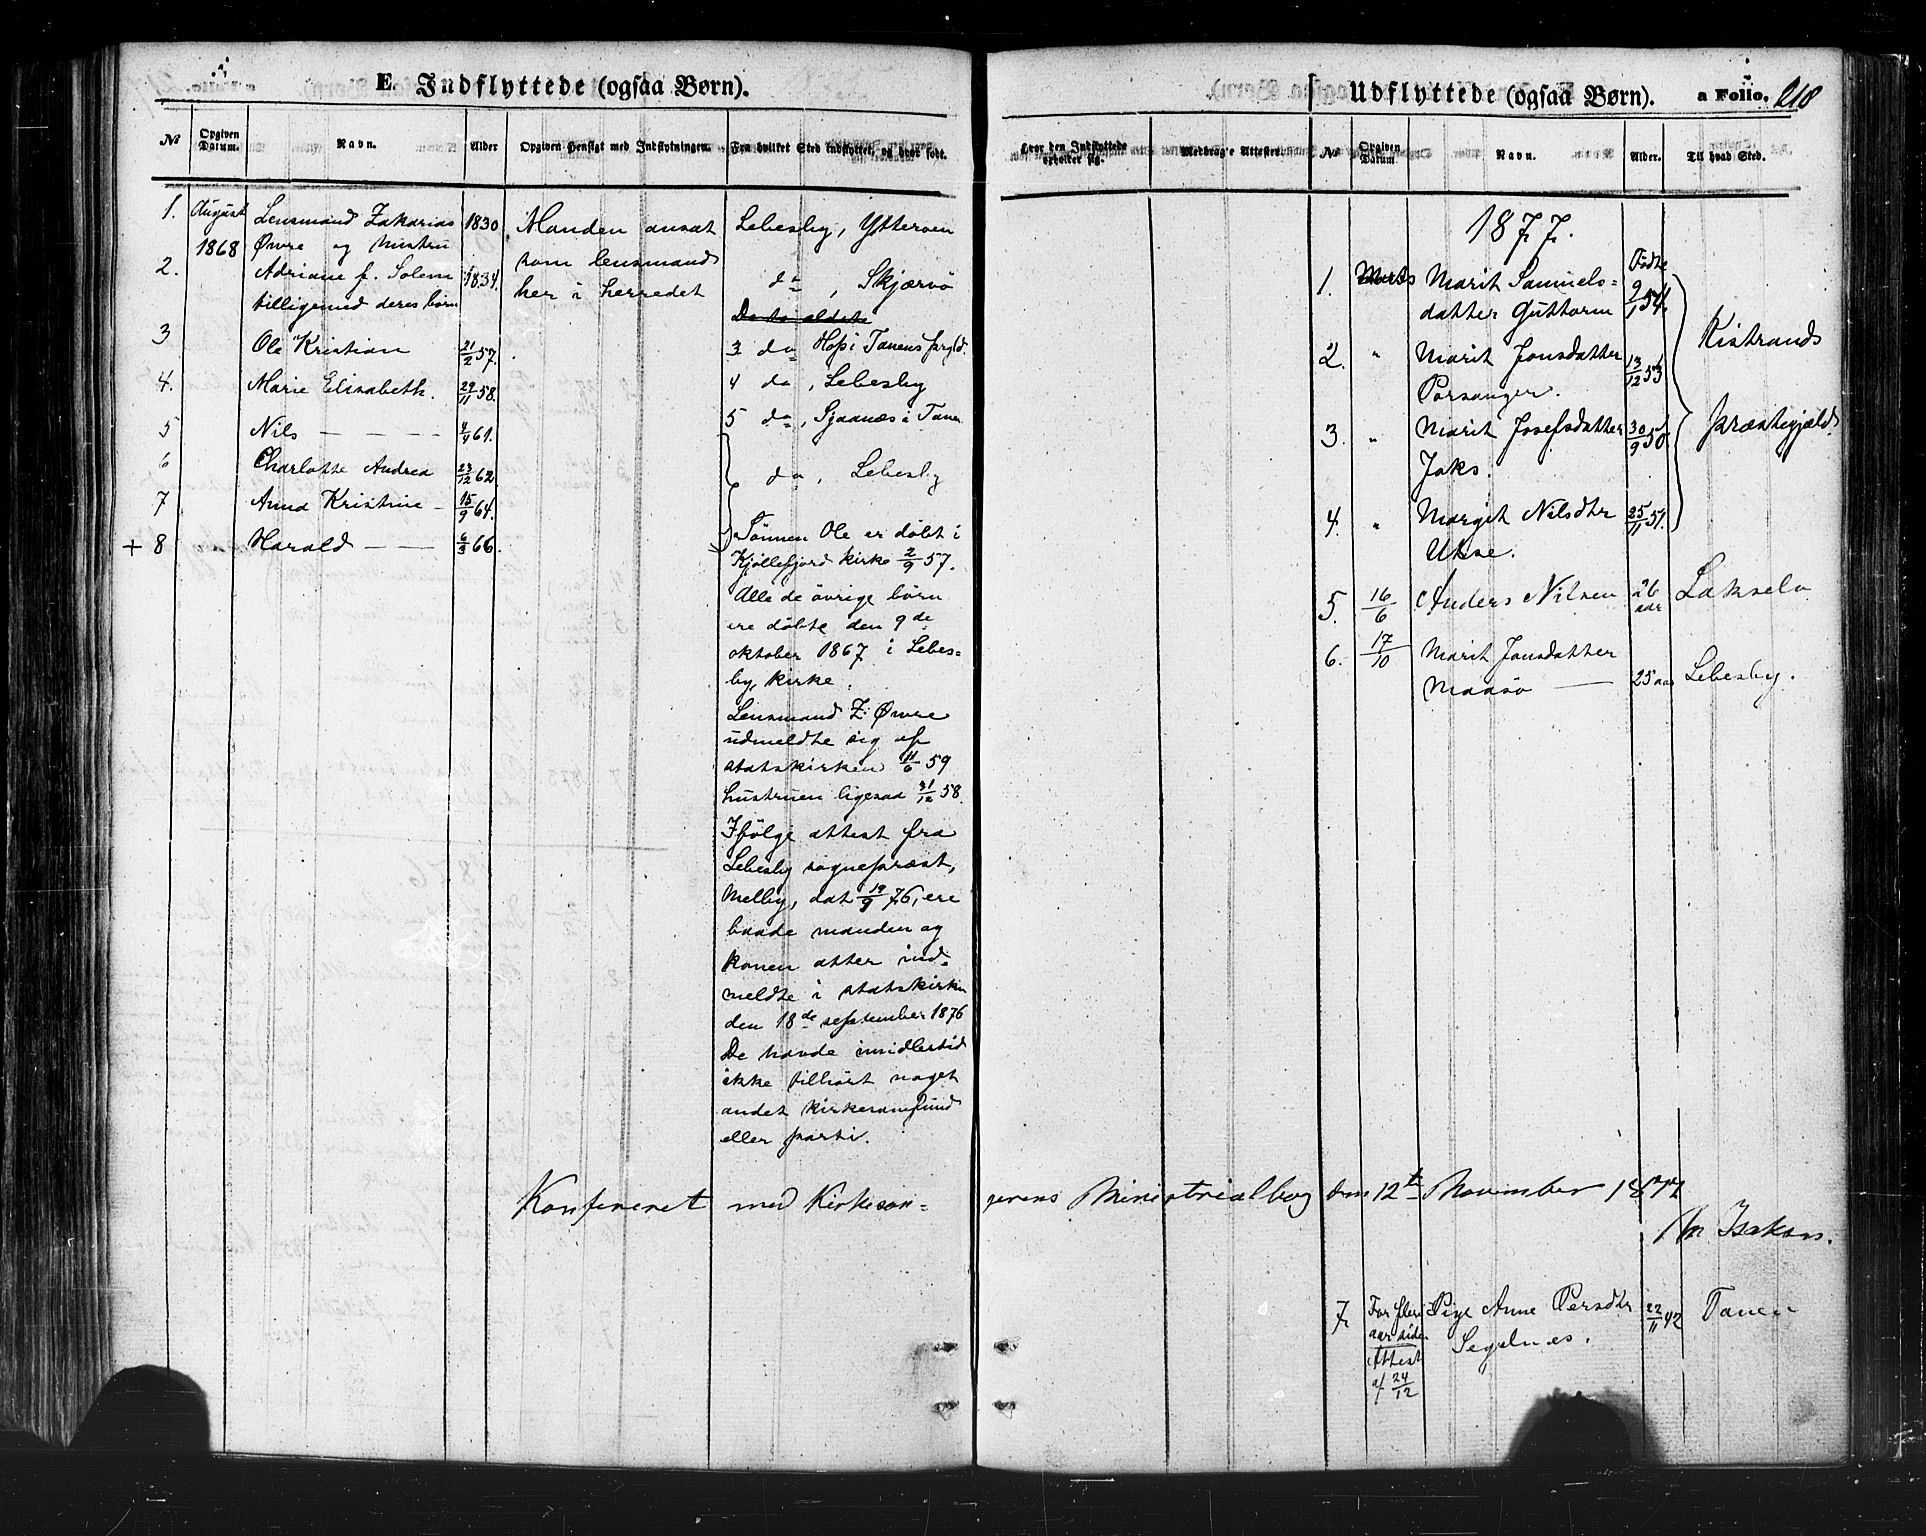 E. Indflyttede (ogsaa Børn).
№ Opgiven Datum. Navn. Alder Opgiven Hensigt med Indflytningen. Fra hvilket Sted indflyttet, og hvor født.
1. August Lensmand Zakarias 1830 Manden ansat Lebesby, Ytteröen
1868 Øvre og hustru som lensmand
2. Adriane f. Solem 1834. her i herredet do , Skjærvö
tilligemed deres börn
De to ældste
3 Ole Kristian 21/2 57. 3 do Hop i Tanens prgld.
4. Marie Elisabeth. 29/11 58. 4 do , Lebesby
5 Nils — — — 4/4 61. 5 do , Sjaanæs i Tanen
6 Charlotte Andrea 23/12 62 do , Lebesby
7 Anna Kristine - 15/9 64.
+ 8 Harald — — 6/3 66.
Sønnen Ole er döbt i
Kjöllefjord kirke 2/9 57.
Alle de övrige börn
ere döbte den 9de
oktober 1867 i Lebes=
by, kirke.
Lensmand Z. Øvre
udmeldte sig af
statskirken 11/6 59
hustruen ligesaa 31/12 58.
Ifölge attest fra
Lebesby sognepræst,
Melby, dat 19/9 76, ere
baade manden og
konen atter ind=
meldte i statskirken
den 18de september 1876
De havde imidlertid
ikke tilhört noget
andet kirkesamfund
eller parti.
Udflyttede (ogsaa Børn). a Folio. 218
Hvor den Indflyttede opholder sig. Medbragte Attester. № Opgiven Datum. Navn. Alder. Til hvad Sted.
1877.
Födte
1. Marts Marit Samuels= 9/1 54.
datter Guttorm
2. " Marit Jonsdatter 13/12 53 Kistrands
Porsanger.
3. " Marit Josefsdatter 30/9 50 præstegjæld.
Jaks.
4. " Margit Nilsdtr 25/11 57.
Utse.
5. 16/6 Anders Nilsen 26 aar Lakselv
6. 17/10 Marit Jonsdatter
Maasö — 25 aar Lebesby.
Konfereret med Kirkesan= gerens Ministerialbog den 12te November 1877
Isaksen.
7. For flere Pige Anne Persdtr 22/11 42 Tanen
aar siden Segelnes.
Attest
af 24/12